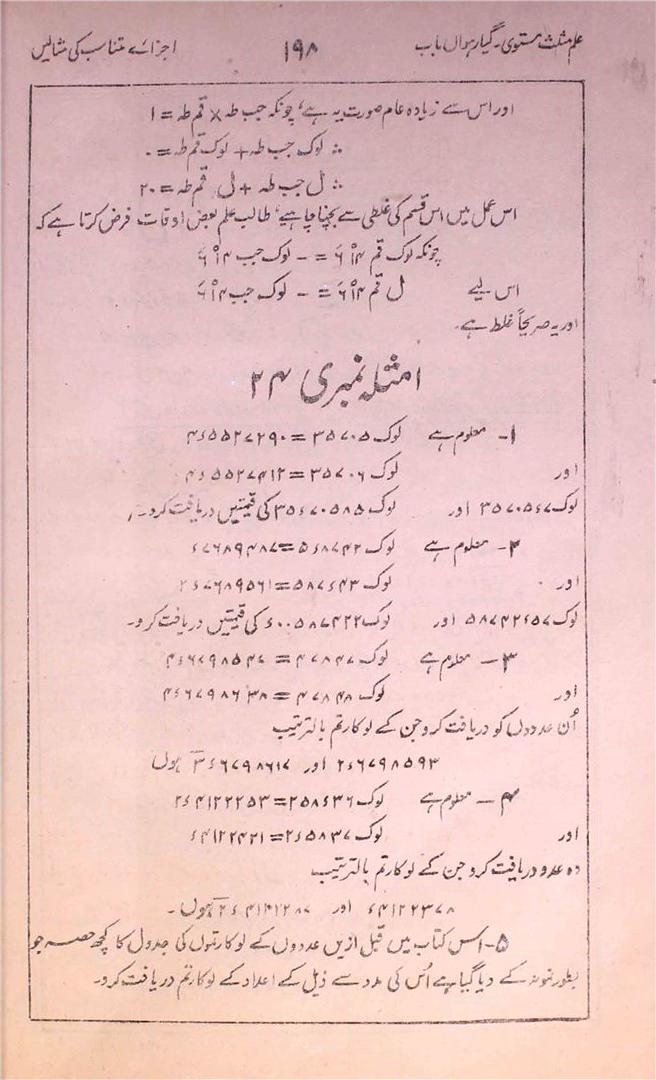 علم مثلث مستوی۔ گیارہواں باب ۱۹۸ اجزائے متناسب کی مثالیں
اور اس سے زیادہ عام صورت یہ ہے، چونکہ جب طہ × قم طہ = ۱
∴ لوک جب طہ + لوک قم طہ = ۰
∴ ل جب طہ + ل قم طہ = ۲۰
اس عمل میں اس قسم کی غلطی سے بچنا چاہیے، طالب علم بعض اوقات فرض کرتا ہے کہ
چونکہ لوک قم = - لوک جب
اس لیے ل قم = - لوک جب
اور یہ صریحاً غلط ہے۔
امثلہ نمبری ۲۴
۱- معلوم ہے لوک ۳۵۷۰۵ = ۴٫۵۵۲۷۲۹۰
اور لوک ۳۵۷۰۶ = ۴٫۵۵۲۷۴۱۲
لوک ۳۵۷۰۵٫۷ اور لوک ۳۵٫۷۰۵۸۵ کی قیمتیں دریافت کرو۔
۲- معلوم ہے لوک ۵٫۸۷۴۲ = ٫۷۶۸۹۴۸۷
اور لوک ۵۸۷٫۴۳ = ۲٫۷۶۸۹۵۶۱
لوک ۵۸۷۴۲٫۵۷ اور لوک ٫۰۰۵۸۷۴۲۲ کی قیمتیں دریافت کرو۔
۳- معلوم ہے لوک ۴۷۸۴۷ = ۴٫۶۷۹۸۵۴۷
اور لوک ۴۷۸۴۸ = ۴٫۶۷۹۸۶۳۸
اُن عددوں کو دریافت کرو جن کے لوکارتم بالترتیب
۲٫۶۷۹۸۵۹۳ اور ۳̄٫۶۷۹۸۶۱۷ ہوں
۴- معلوم ہے لوک ۲۵۸٫۳۶ = ۲٫۴۱۲۲۲۵۳
اور لوک ۲٫۵۸۳۷ = ٫۴۱۲۲۴۲۱
وہ عدد دریافت کرو جن کے لوکارتم بالترتیب
٫۴۱۲۲۳۷۸ اور ہوں۔
۵- اس کتاب میں قبل ازیں عددوں کے لوکارتموں کی جدول کا کچھ حصہ جو
بطور نمونہ کے دیا گیا ہے اُس کی مدد سے ذیل کے اعداد کے لوکارتم دریافت کرو۔